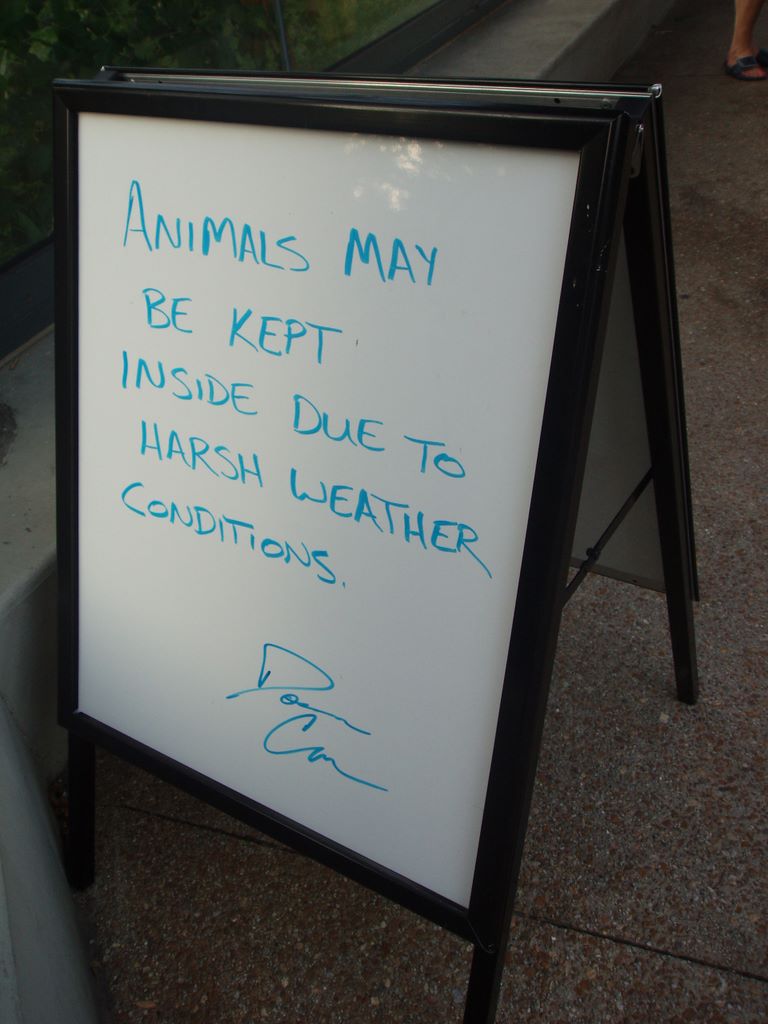 ANIMALS MAY
BE KEPT
INSIDE DUE TO
HARSH WEATHER
CONDITIONS.